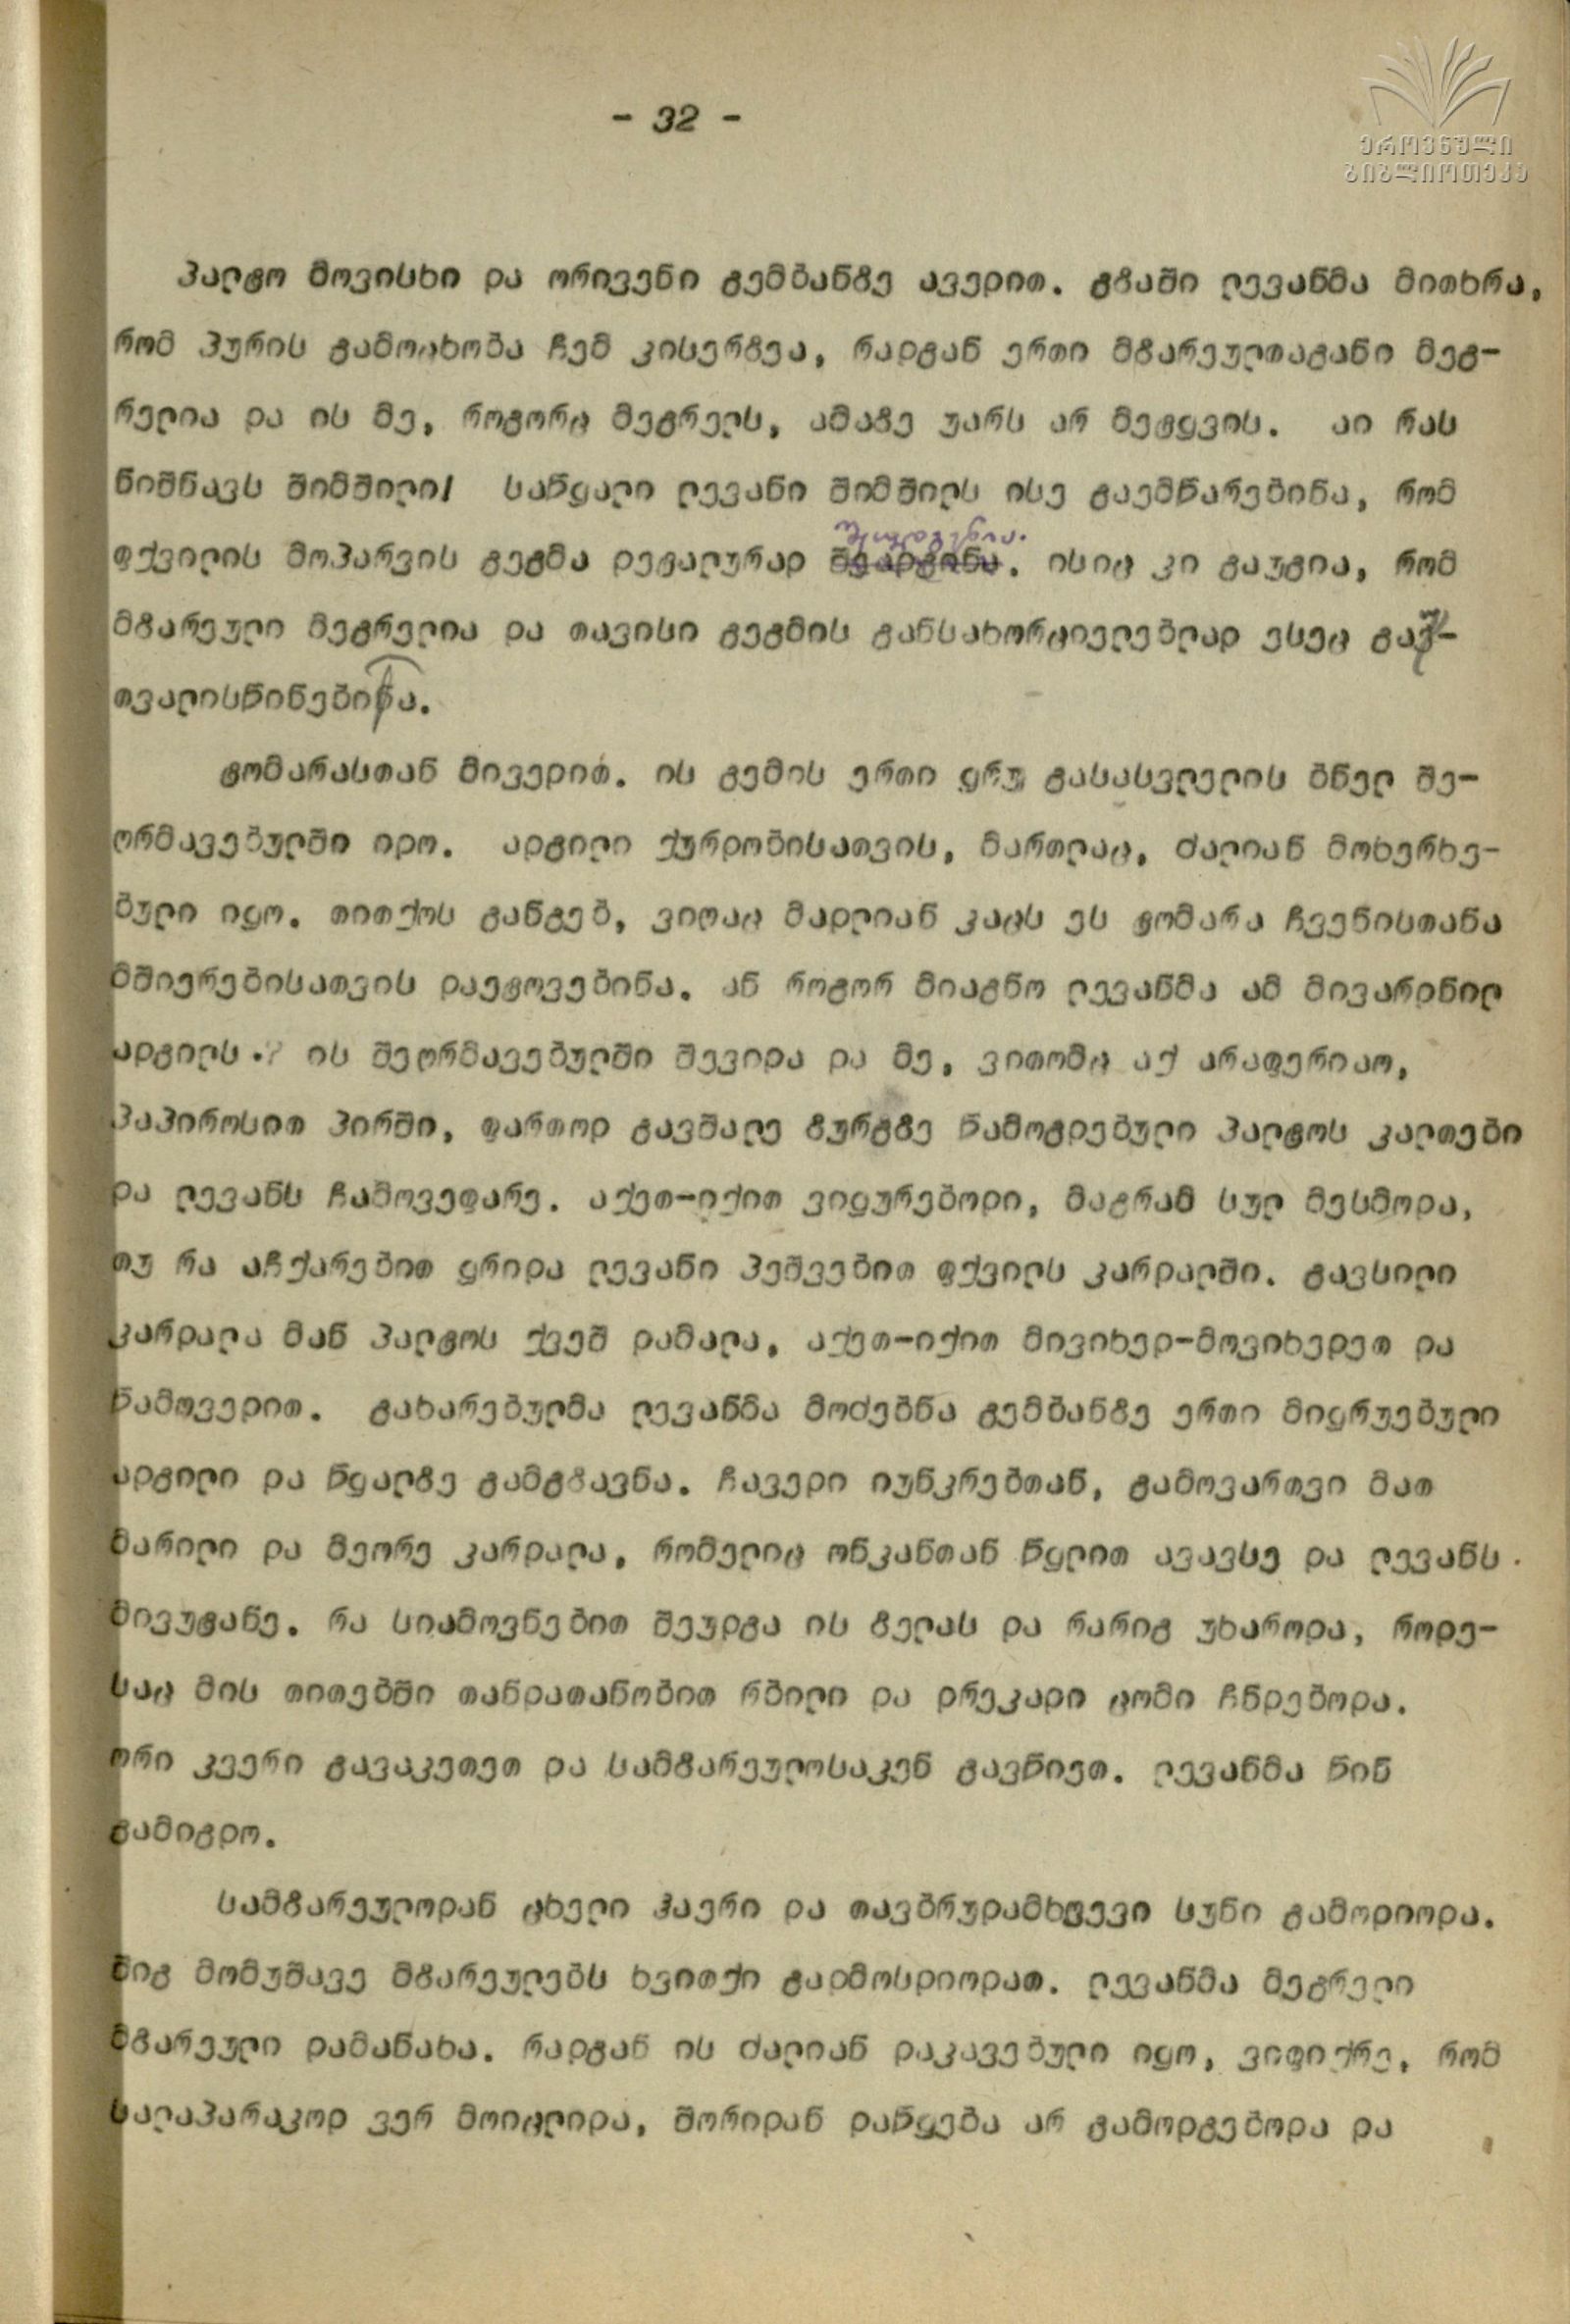 - 32 -
ეროვნული
ბიბლიოთეკა
პალტო მოვისხი და ორივენი გემბანზე ავედით. გზაში ლევანმა მითხრა,
რომ პურის გამოცხობა ჩემ კისერზეა, რადგან ერთი მზარეულთაგანი მეგ-
რელია და ის მე, როგორც მეგრელს, ამაზე უარს არ მეტყვის. აი რას
ნიშნავს შიმშილი! საწყალი ლევანი შიმშილს ისე გაემწარებინა, რომ
შეუდგენია.
ფქვილის მოპარვის გეგმა დეტალურად შეადგინა. ისიც კი გაუგია, რომ
მზარეული მეგრელია და თავისი გეგმის განსახორციელებლად ესეც გაუ-
თვალისწინებინა.
ტომარასთან მივედით. ის გემის ერთი ყრუ გასასვლელის ბნელ შე-
ღრმავებულში იდო. ადგილი ქურდობისათვის, მართლაც, ძალიან მოხერხე-
ბული იყო. თითქოს განგებ, ვიღაც მადლიან კაცს ეს ტომარა ჩვენისთანა
მშიერებისათვის დაეტოვებინა. ან როგორ მიაგნო ლევანმა ამ მივარდნილ
ადგილს.? ის შეღრმავებულში შევიდა და მე, ვითომც აქ არაფერიაო,
პაპიროსით პირში, ფართოდ გავშალე ზურგზე წამოგდებული პალტოს კალთები
და ლევანს ჩამოვეფარე. აქეთ-იქით ვიყურებოდი, მაგრამ სულ მესმოდა,
თუ რა აჩქარებით ყრიდა ლევანი პეშვებით ფქვილს კარდალში. გავსილი
კარდალა მან პალტოს ქვეშ დამალა, აქეთ-იქით მივიხედ-მოვიხედეთ და
წამოვედით. გახარებულმა ლევანმა მოძებნა გემბანზე ერთი მიყრუებული
ადგილი და წყალზე გამგზავნა. ჩავედი იუნკრებთან, გამოვართვი მათ
მარილი და მეორე კარდალა, რომელიც ონკანთან წყლით ავავსე და ლევანს
მივუტანე. რა სიამოვნებით შეუდგა ის ზელას და რარიგ უხაროდა, როდე-
საც მის თითებში თანდათანობით რბილი და დრეკადი ცომი ჩნდებოდა.
ორი კვერი გავაკეთეთ და სამზარეულოსაკენ გავწიეთ. ლევანმა წინ
გამიგდო.
სამზარეულოდან ცხელი ჰაერი და თავბრუდამხვევი სუნი გამოდიოდა.
შიგ მომუშავე მზარეულებს ხვითქი გადმოსდიოდათ. ლევანმა მეგრელი
მზარეული დამანახა. რადგან ის ძალიან დაკავებული იყო, ვიფიქრე, რომ
სალაპარაკოდ ვერ მოიცლიდა, შორიდან დაწყება არ გამოდგებოდა და